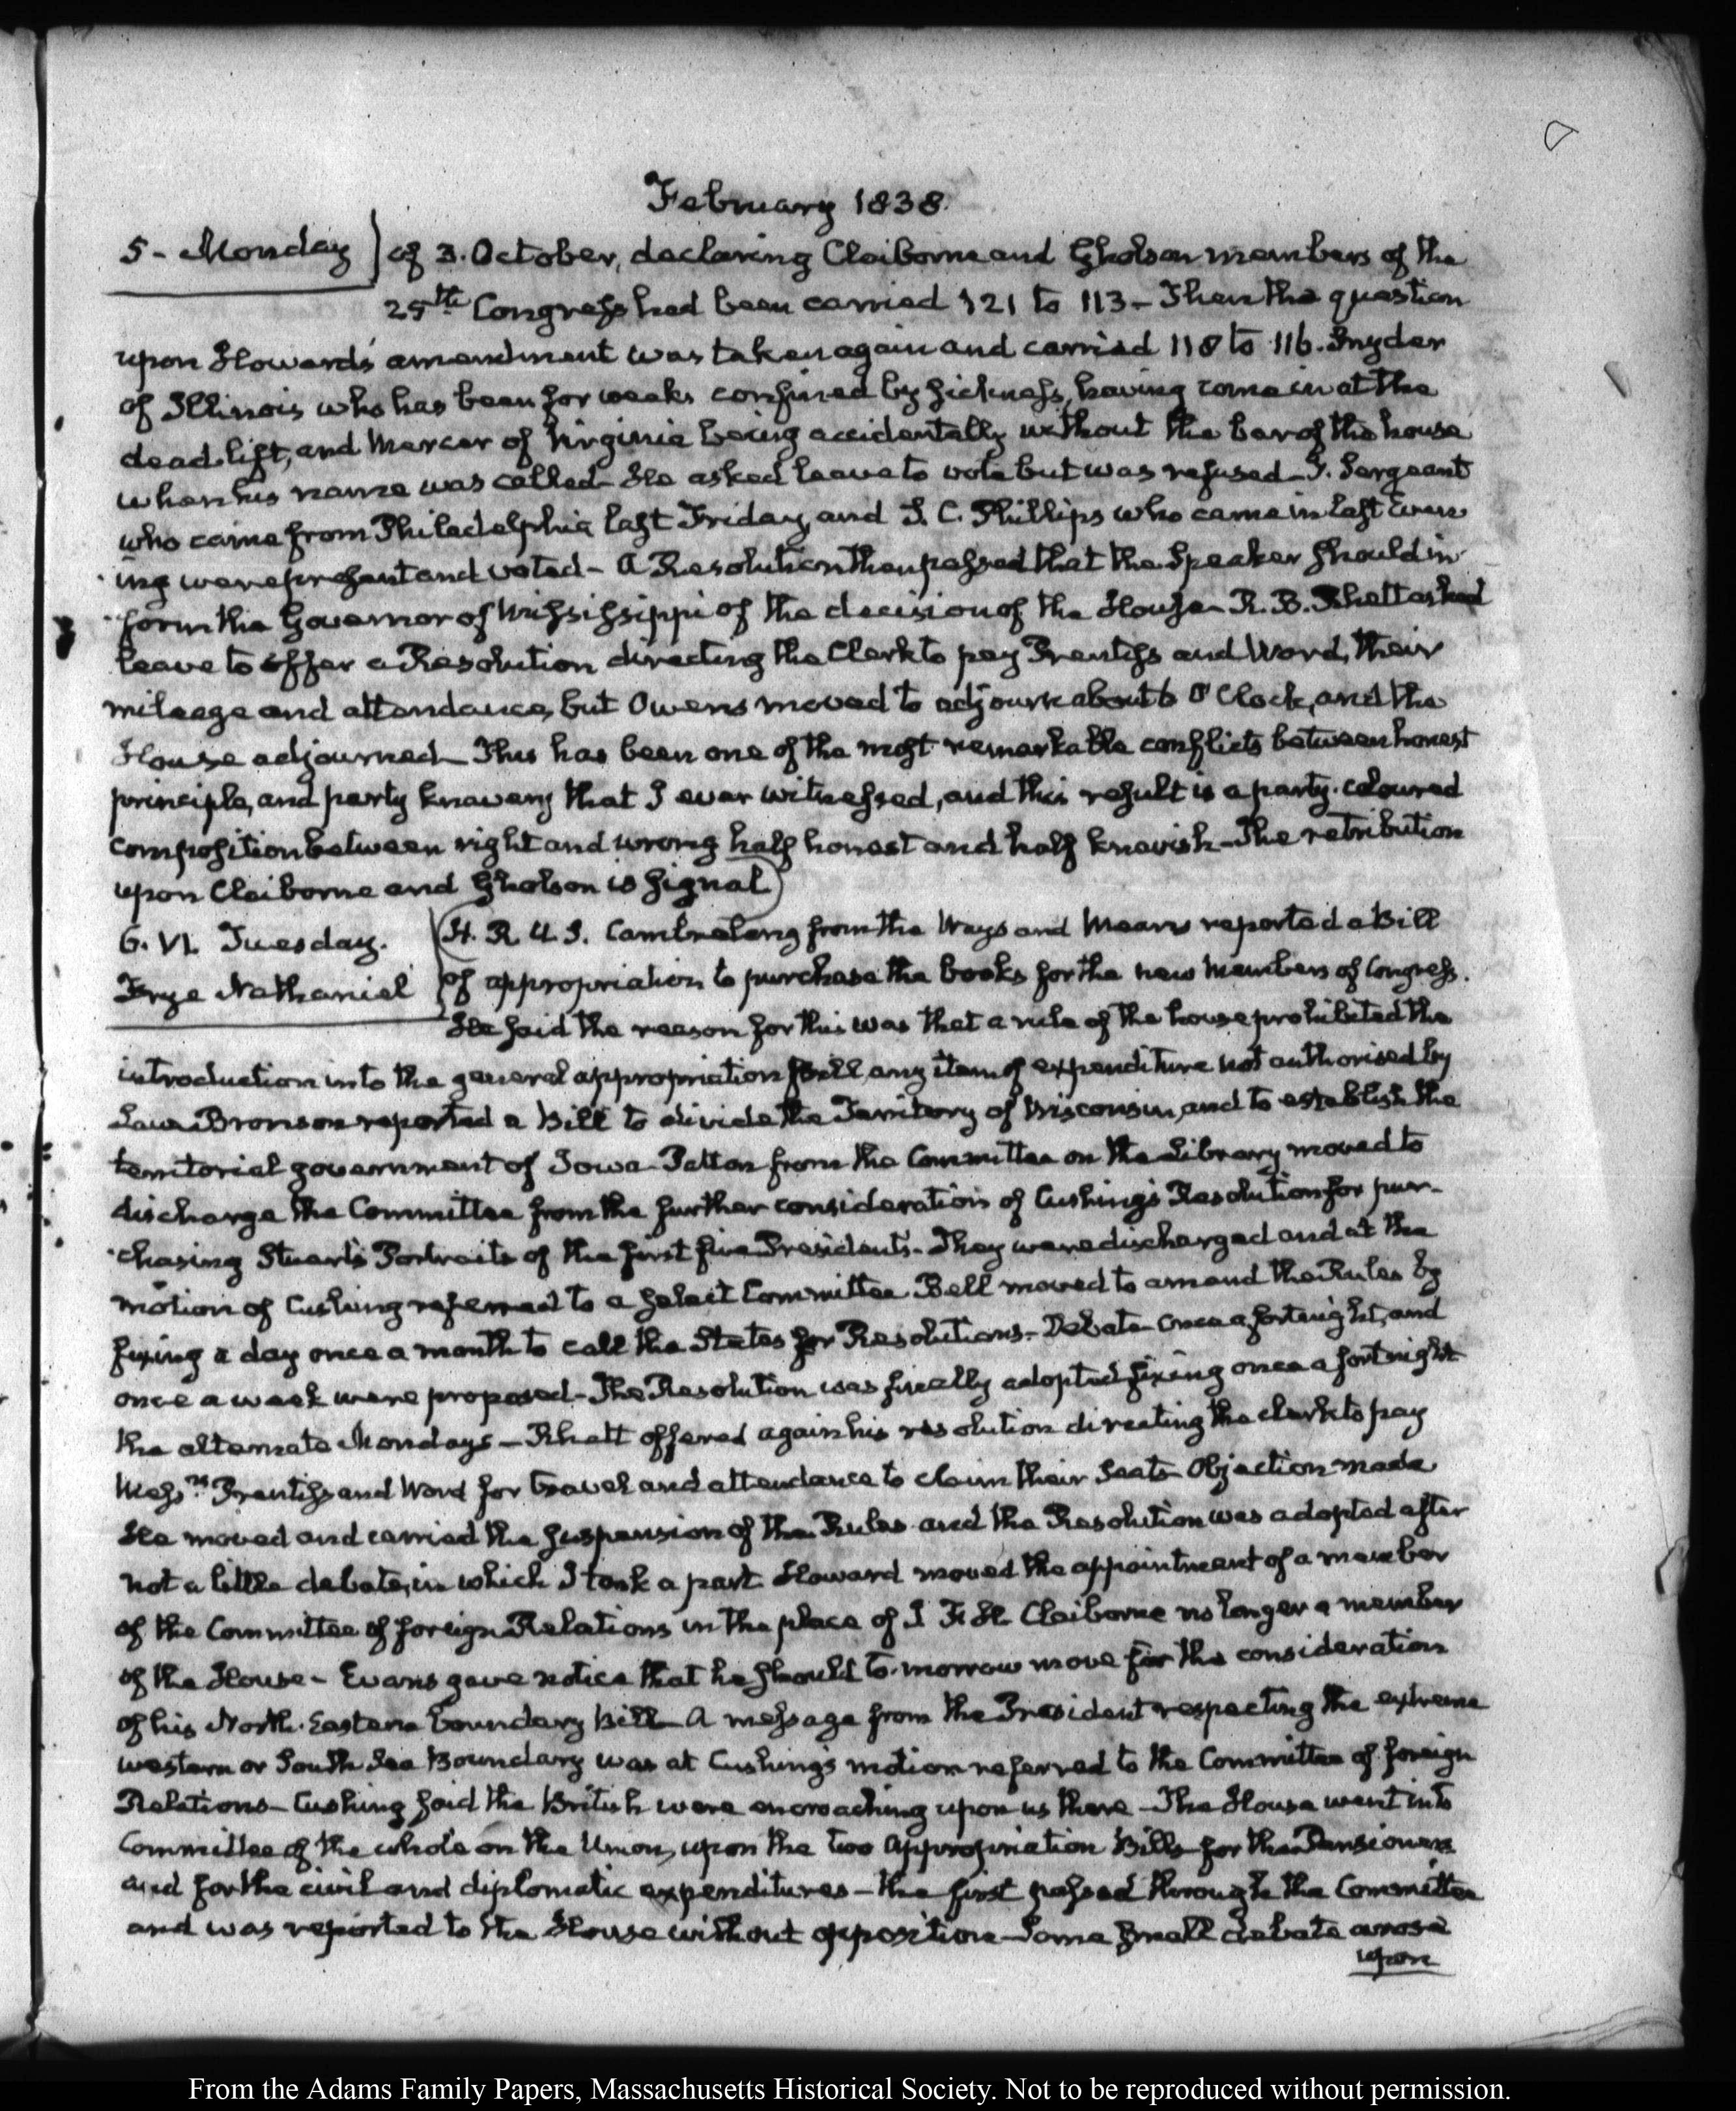 February 1838.
5 - Monday } of 3. October, declaring Claiborne and Gholson members of the
25th Congress had been carried 121 to 113 - Then the question
upon Howard's amendment was taken again and carried 118 to 116. Snyder
of Illinois who has been for weeks confined by sickness, having come in at the
dead lift, and Mercer of Virginia being accidentally without the bar of the house
when his name was called - He asked leave to vote but was refused - J. Sergeant
who came from Philadelphia last Friday, and S. C. Phillips who came in last Even
ing were present and voted - A Resolution then passed that the Speaker should in
form the Governor of Mississippi of the decision of the House - R. B. Rhett asked
leave to offer a Resolution directing the Clerk to pay Prentiss and Word, their
mileage and attendance, but Owens moved to adjourn about 6 O'Clock, and the
House adjourned - This has been one of the most remarkable conflicts between honest
principle, and party knavery that I ever witnessed, and this result is a party-coloured
composition between right and wrong half honest and half knavish - The retribution
upon Claiborne and Gholson is signal.
6. VI. Tuesday. H. R. U. S. Cambreleng from the Ways and Means reported a Bill
Frye Nathaniel of appropriation to purchase the books for the new Members of Congress.
He said the reason for this was that a rule of the house prohibited the
introduction into the general appropriation bill, any item of expenditure not authorised by
Law. Bronson reported a Bill to divide the Territory of Wisconsin, and to establish the
territorial government of Iowa - Patton from the Committee on the Library moved to
discharge the Committee from the further consideration of Cushing's Resolution for pur-
chasing Stuart's Portraits of the first five Presidents - They were discharged and at the
motion of Cushing referred to a select Committee. Bell moved to amend the Rules by
fixing a day once a month to call the States for Resolutions - Debate - Once a fortenight, and
once a week were proposed - The Resolution was finally adopted fixing once a fortnight
the alternate Mondays - Rhett offered again his resolution directing the clerk to pay
Messrs Prentiss and Word for travel and attendance to claim their seats - Objection made
He moved and carried the suspension of the Rules and the Resolution was adopted after
not a little debate, in which I took a part. Howard moved the appointment of a member
of the Committee of foreign Relations in the place of J F H Claiborne no longer a member
of the House - Evans gave notice that he should to-morrow move for the consideration
of his North-Eastern boundary bill - A message from the President respecting the extreme
western or South Sea Boundary was at Cushing's motion referred to the Committee of foreign
Relations - Cushing said the British were encroaching upon us there - The House went into
Committee of the whole on the Union, upon the two Appropriation Bills for the Pensioners
and for the civil and diplomatic expenditures - the first passed through the Committee
and was reported to the House without opposition - Some small debate arose
upon
From the Adams Family Papers, Massachusetts Historical Society. Not to be reproduced without permission.